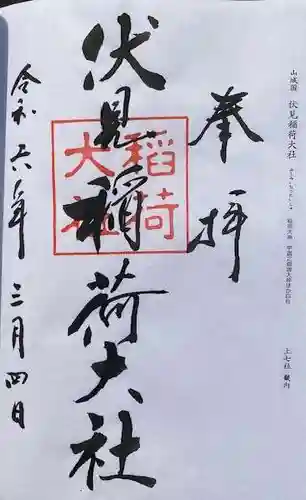 山城国 伏見稲荷大社
上七社 畿内
奉拝
伏見稲荷大社
稲荷大社
令和六年三月四日